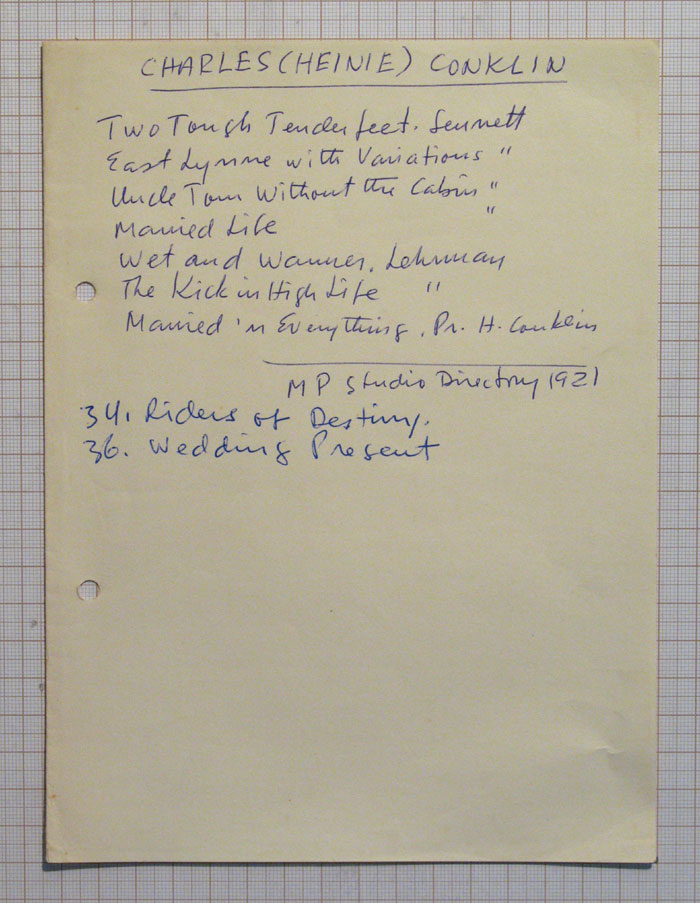 CHARLES (HEINIE) CONKLIN
Two Tough Tenderfeet. Sennett
East Lynne with Variations "
Uncle Tom Without the Cabin "
Married Life "
Wet and Warmer. Lehrman
The Kick in High Life "
Married 'n Everything. Pr. H. Conklin
M P Studio Directory 1921
34. Riders of Destiny.
36. Wedding Present